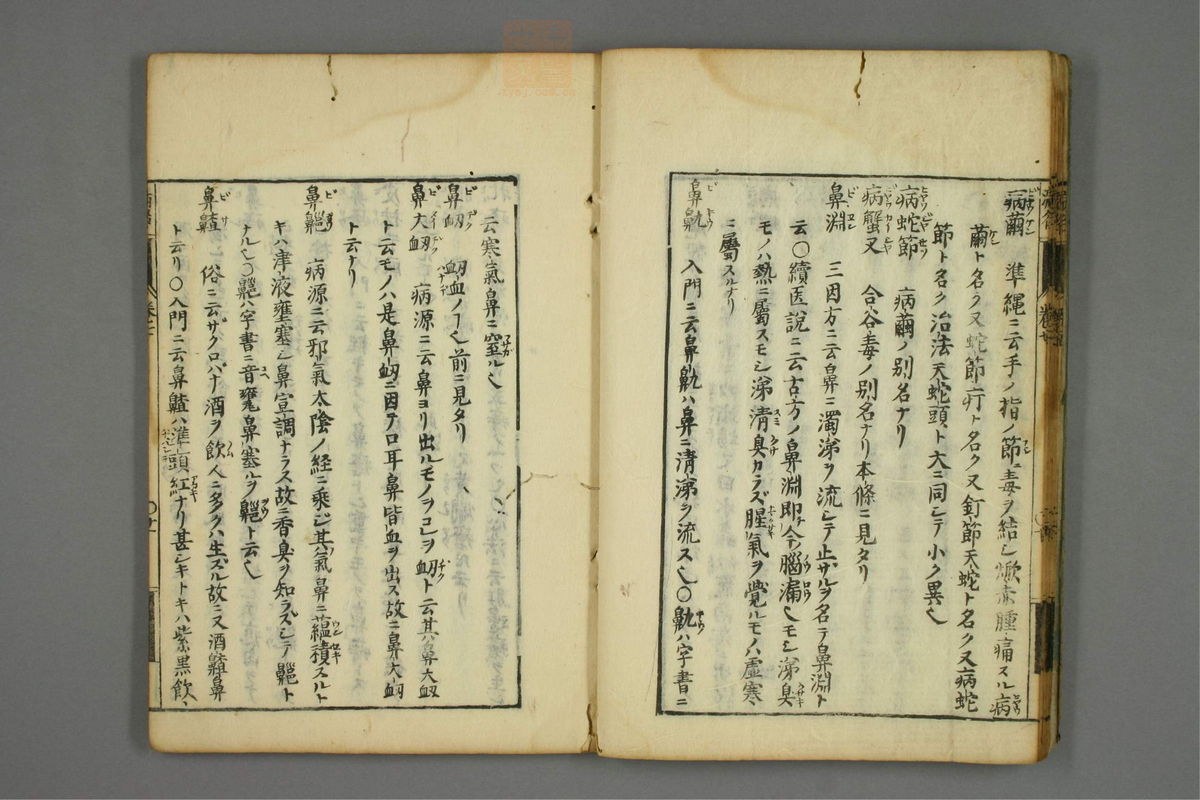 病繭 準繩ニ云手ノ指ノ節ニ毒ヲ結シ焮赤腫痛スル病
繭ト名ク又蛇節疔ト名ク又釘節天蛇ト名ク又病蛇
節ト名ク治法天蛇頭ト大ニ同シテ小ク異也
病蛇節 病繭ノ別名ナリ
病蟹叉 合谷毒ノ別名ナリ本條ニ見タリ
鼻淵 三因方ニ云鼻ニ濁涕ヲ流シテ止ザルヲ名テ鼻淵ト
云〇續医説ニ云古方ノ鼻淵即今腦漏也モシ涕臭
モノハ熱ニ屬スモシ涕清臭カラズ腥氣ヲ覺ルモノハ虚寒
ニ屬スルナリ
鼻鼽 入門ニ云鼻鼽ハ鼻ニ清涕ヲ流ス也〇鼽ハ字書ニ
云寒氣鼻ニ窒ル也
鼻衄 衄血ノ也前ニ見タリ
鼻大衄 病源ニ云鼻ヨリ出ルモノヲコレヲ衄ト云其ハ鼻大衄
ト云モノハ是鼻衄ニ因テ口耳鼻皆血ヲ出ス故ニ鼻大衄
ト云ナリ
鼻齆 病源ニ云邪氣太陰ノ経ニ乘ジ其氣鼻ニ蘊積スルト
キハ津液壅塞シ鼻宣調ナラス故ニ香臭ヲ知ラズシテ齆ト
ナル也〇齆ハ字書ニ音甕鼻塞ルヲ齆ト云也
鼻齄 俗ニ云ザクロバナ酒ヲ飲人ニ多クハ生ズル故ニ又酒齄鼻
ト云リ〇入門ニ云鼻齄ハ準頭紅ナリ甚シキトキハ紫黒飲